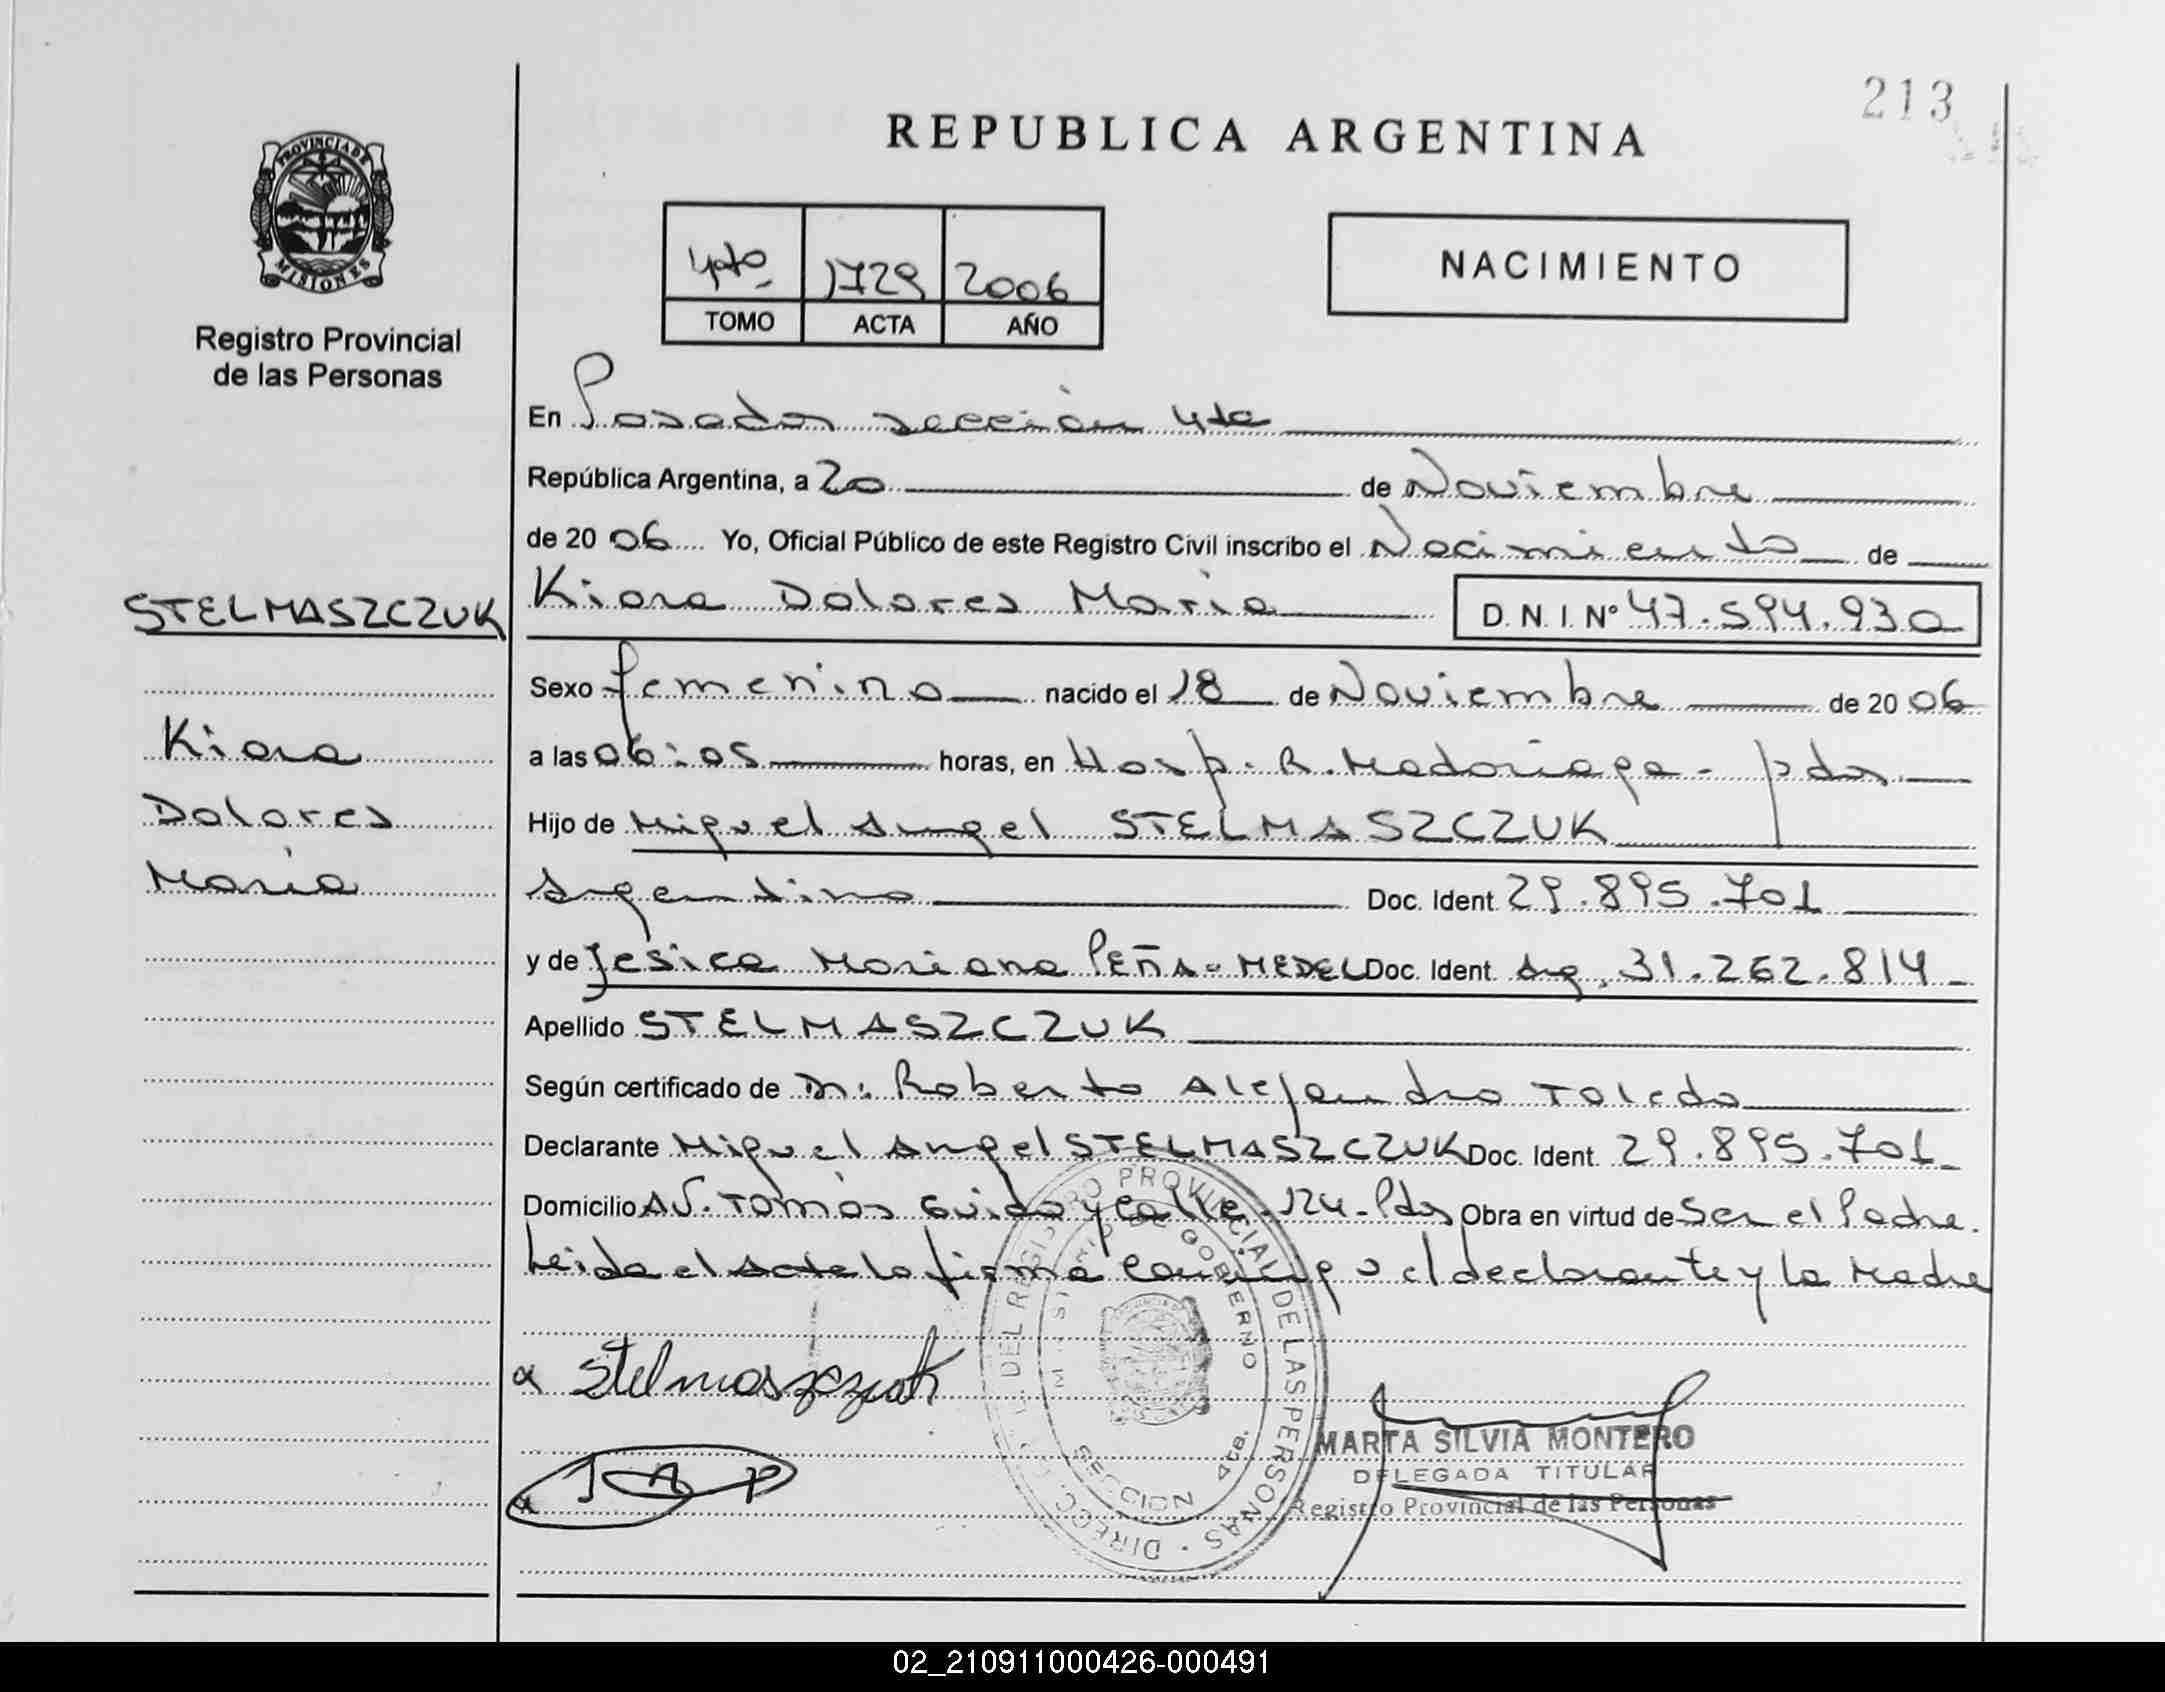 213
REPUBLICA ARGENTINA
PROVINCIA DE
MISIONES
Registro Provincial
de las Personas
4to 1729 2006
TOMO ACTA AÑO
NACIMIENTO
En Posadas sección 4ta
República Argentina, a 20 de Noviembre
de 2006 Yo, Oficial Público de este Registro Civil inscribo el Nacimiento de
STELMASZCZUK
Kiara Dolores María D. N. I. Nº 47.594.930
Sexo femenino nacido el 18 de Noviembre de 2006
Kiara
a las 06:05 horas, en Hosp. R. Madariaga - pdas.
Dolores
Hijo de Miguel Angel STELMASZCZUK
María
Argentino Doc. Ident. 29.895.701
y de Jesica Mariana PEÑA-MEDEL Doc. Ident. Arg. 31.262.814
Apellido STELMASZCZUK
Según certificado de Dr: Roberto Alejandro Toledo
Declarante Miguel Angel STELMASZCZUK Doc. Ident. 29.895.701
Domicilio AV. Tomás Guido y Calle 124 - Pdas Obra en virtud de Ser el Padre.
Leida el Acta la firma conmigo el declarante y la Madre
Stelmaszczuk
JAP
DIRECC. DEL REGISTRO PROVINCIAL DE LAS PERSONAS
MINISTERIO DE GOBIERNO
SECCION 4ta.
MARTA SILVIA MONTERO
DELEGADA TITULAR
Registro Provincial de las Personas
02_210911000426-000491